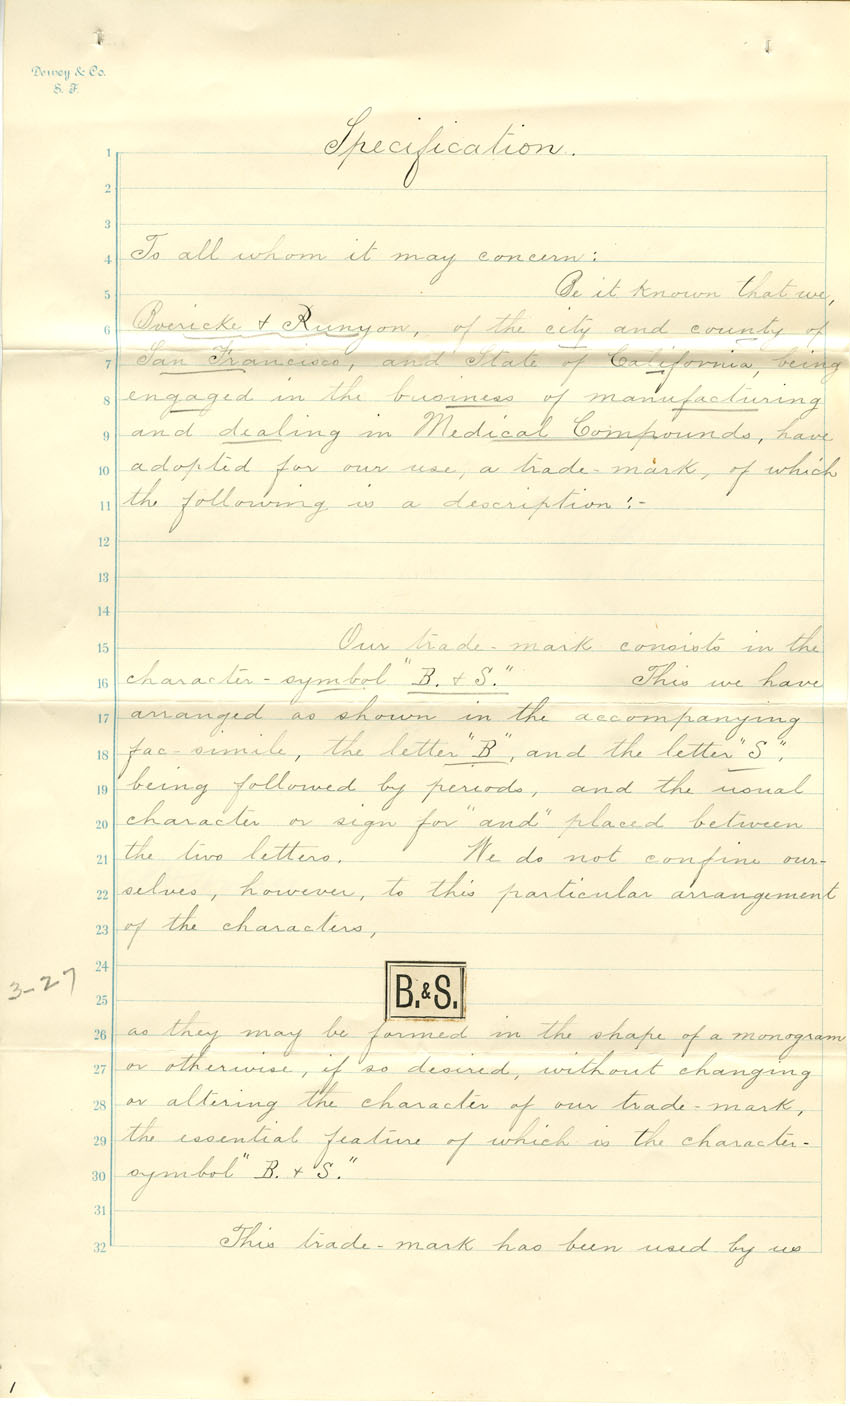 Dewey & Co.
S. F.
Specification.
1
2
3
4 To all whom it may concern:
5 Be it known that we,
6 Boericke & Runyon, of the city and county of
7 San Francisco, and State of California, being
8 engaged in the business of manufacturing
9 and dealing in Medical Compounds, have
10 adopted for our use, a trade-mark, of which
11 the following is a description:-
12
13
14
15 Our trade-mark consists in the
16 character-symbol "B. & S." This we have
17 arranged as shown in the accompanying
18 fac-simile, the letter "B", and the letter "S",
19 being followed by periods, and the usual
20 character or sign for "and" placed between
21 the two letters. We do not confine our-
22 selves, however, to this particular arrangement
23 of the characters,
24
3-27
B.&S.
25
26 as they may be formed in the shape of a monogram
27 or otherwise, if so desired, without changing
28 or altering the character of our trade-mark,
29 the essential feature of which is the character-
30 symbol "B. & S."
31
32 This trade-mark has been used by us
1